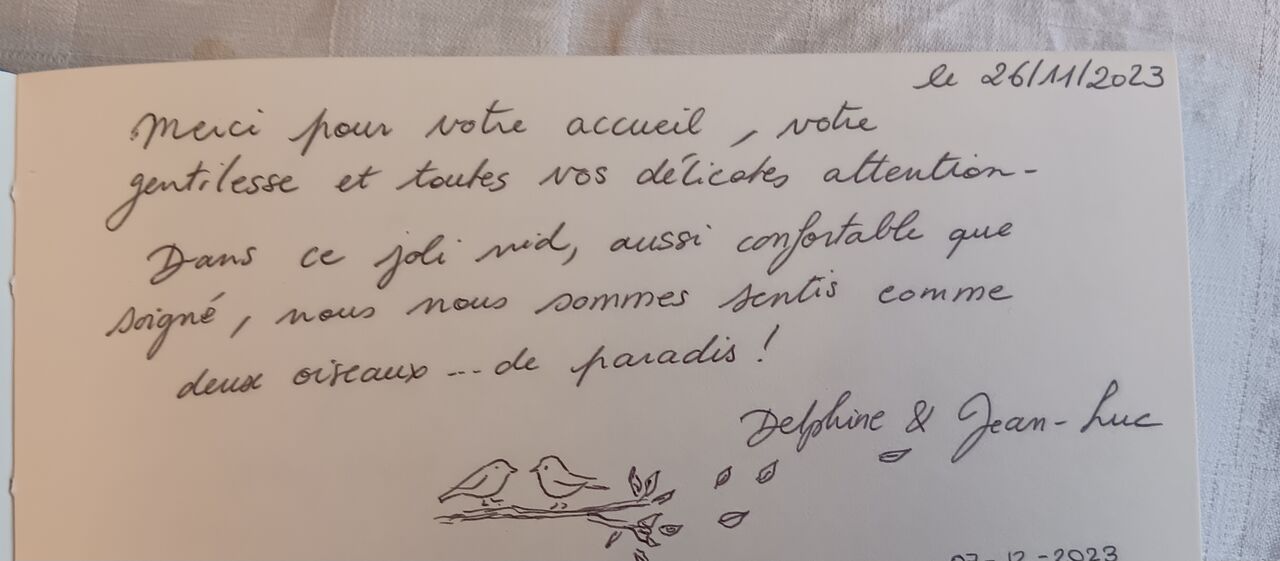 le 26/11/2023
Merci pour votre accueil, votre
gentilesse et toutes vos délicates attention-
Dans ce joli nid, aussi confortable que
soigné, nous nous sommes sentis comme
deux oiseaux ... de paradis !
Delphine & Jean-Luc
07-12-2023